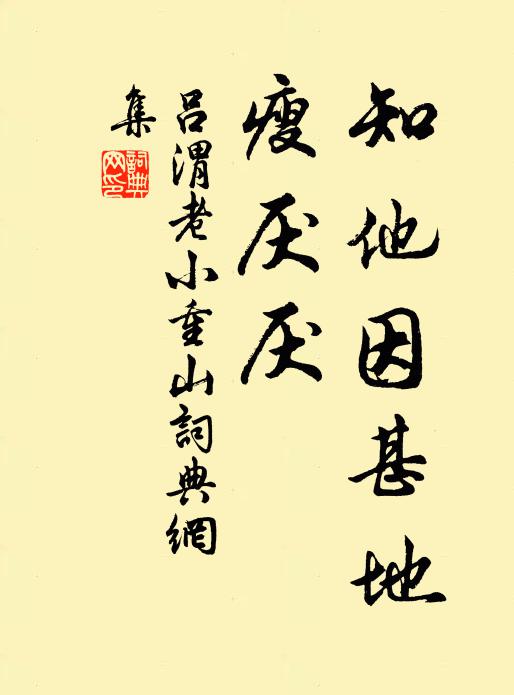 知他因甚地
瘦厌厌
吕渭老小重山詞典網
集
詞典
网印